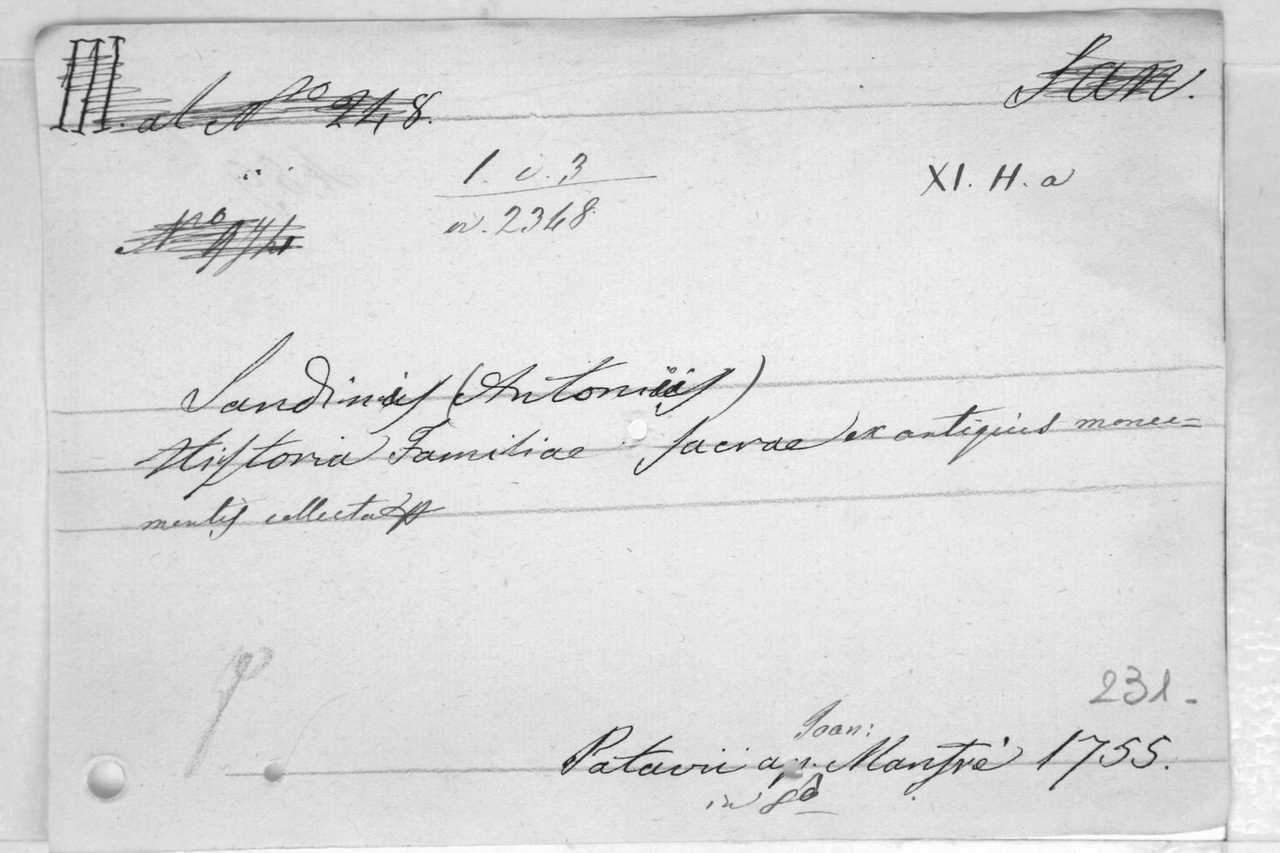 III. al Nro 248.
San.
1. c. 3
n. 2348
XI. H. a
Sandinis (Antonius)
Historia Familiae Sacrae ex antiquis monu=
mentis collecta
231-
Joan:
Patavii ap. Manfrè 1755.
in 8o